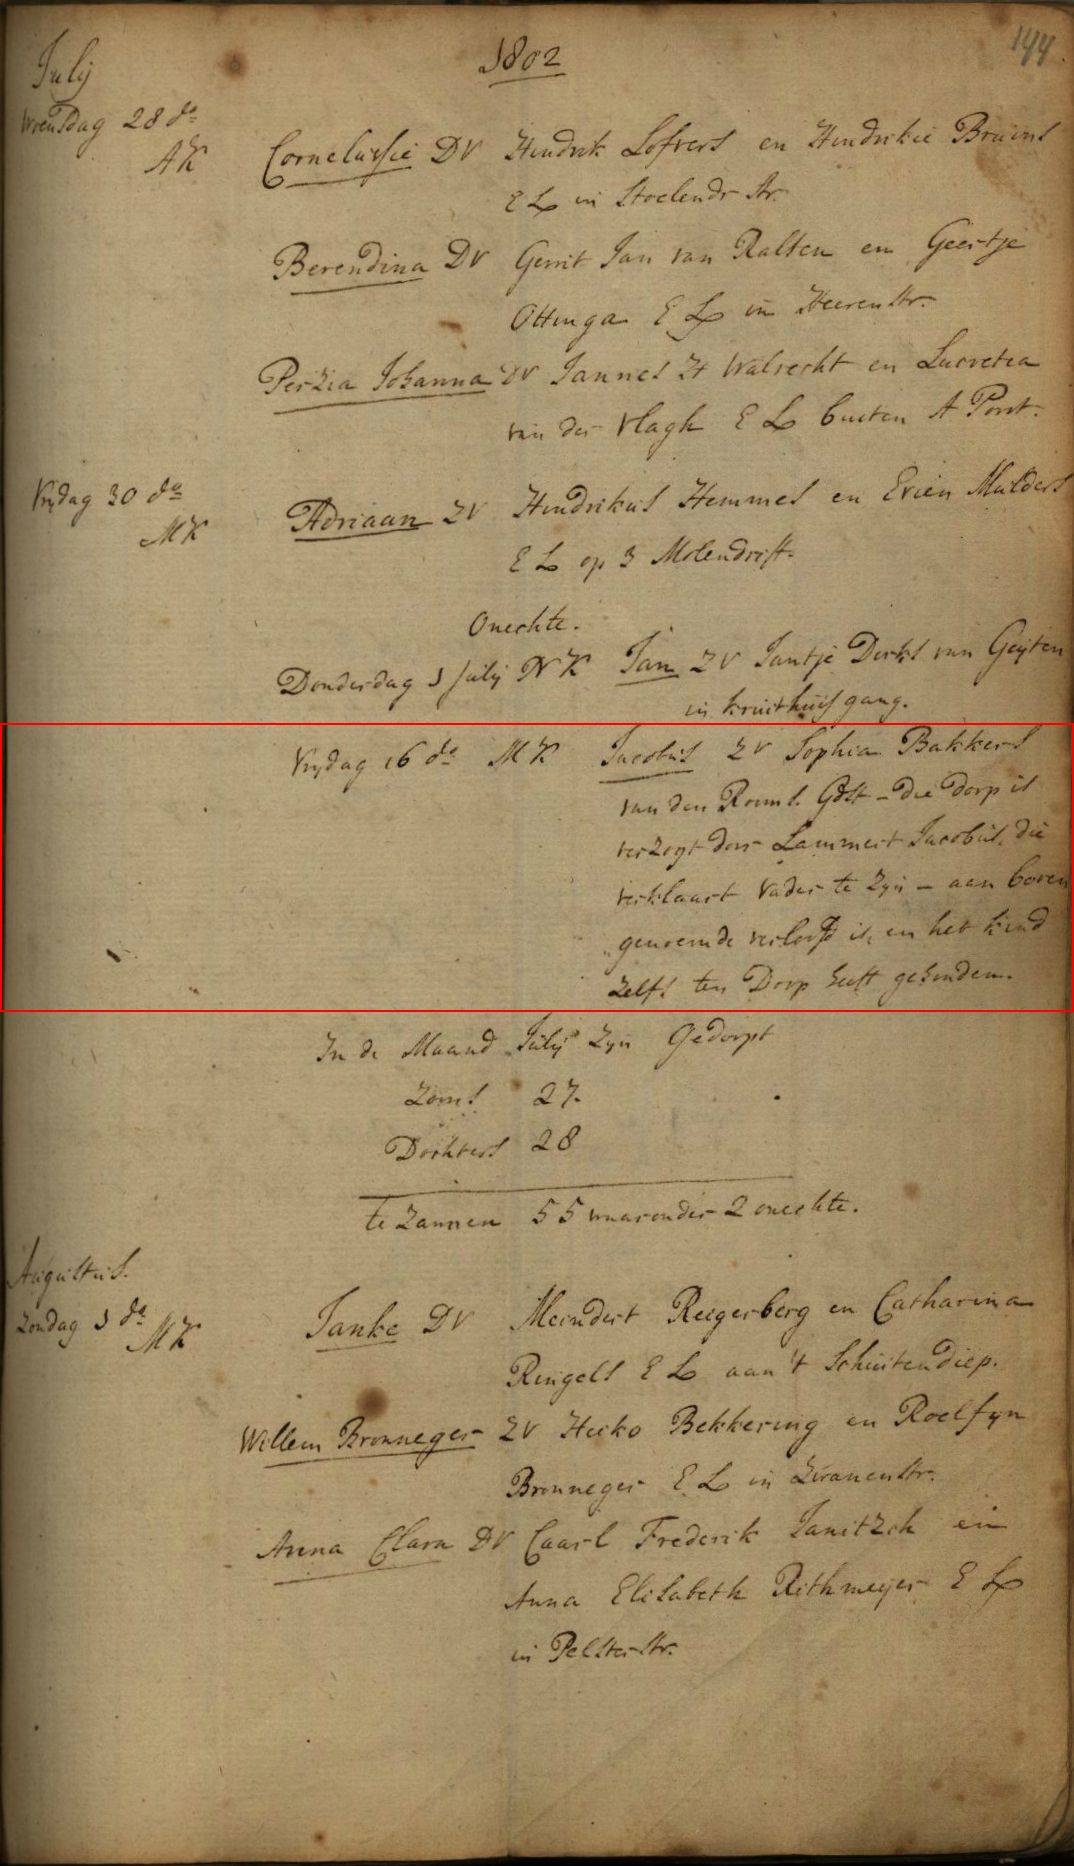 1802
144
July
Woensdag 28 do
AK Cornelussie DV Hendrik Lofvers en Hindrikie Bruins
E L in Stoelendr Str.
Berendina DV Gerrit Jan van Ralten en Geertje
Ottinga E L in Heerenstr.
Perzia Johanna DV Jannes H Walrecht en Lucretia
van der Vlagh E L buiten A Poort.
Vrydag 30 do
MK Adriaan ZV Hindrikus Hemmes en Evien Mulders
E L op 3 Molendrift.
Onechte.
Donderdag 1 July NK Jan ZV Jantje Derks van Geyten
in kruithuisgang.
Vrydag 16 do MK Jacobus ZV Sophia Bakkers
van den Rooms. Gdst - die Dorp is
verzogt door Lammert Jacobus, die
verklaart Vader te zyn - aan boven
genoemde verloofd is, en het kind
zelfs ten Doop heeft gehouden.
In de Maand July Zyn Gedoopt
Zoons 27.
Dochters 28
te zamen 55 waaronder 2 onechte.
Augustus.
Zondag 1 do
MK Janke DV Meindert Reigerberg en Catharina
Ringels E L aan 't Schuitendiep.
Willem Bronneger ZV Heeko Bekkering en Roelfyn
Bronneger E L in Zwanenstr.
Anna Clara DV Caarl Frederik Janitzch en
Anna Elisabeth Rithmeyer E L
in Pelsterstr.